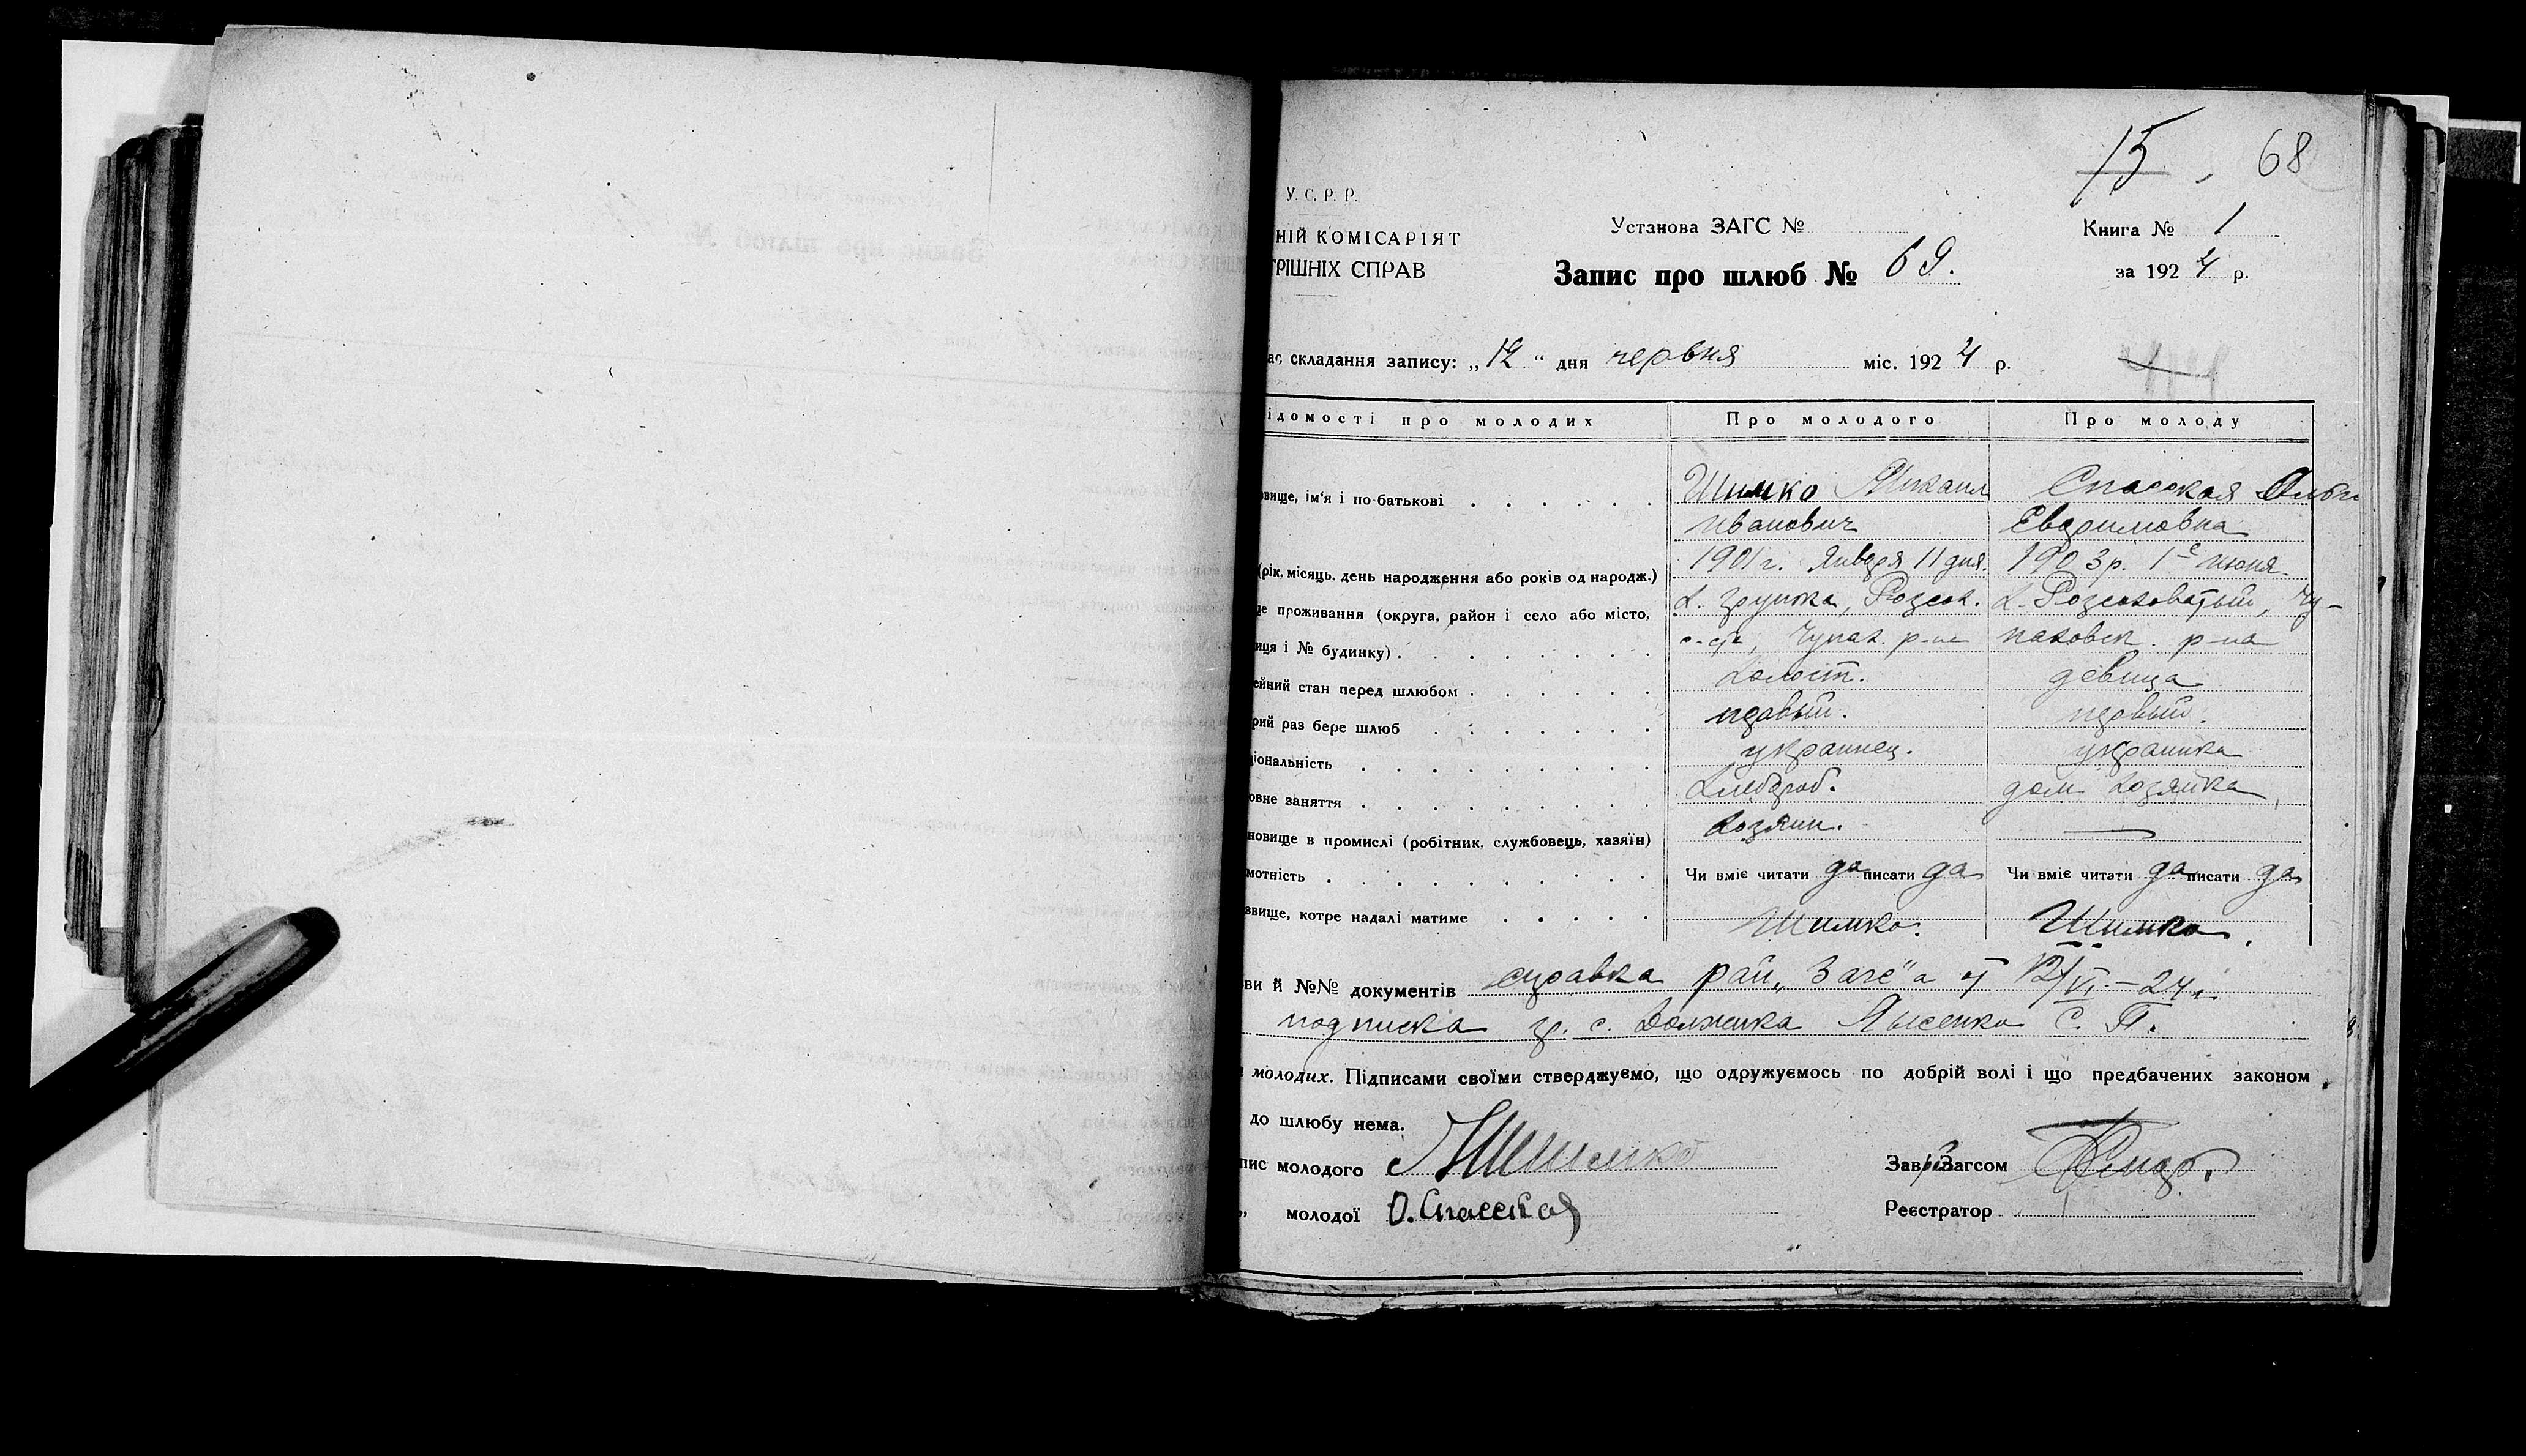 15 68
У.С.Р.Р.
НІЙ КОМІСАРІЯТ
РІШНІХ СПРАВ
Установа ЗАГС №
Запис про шлюб № 69.
Книга № 1
за 1924 р.
ас складання запису: „12“ дня червня міс. 1924 р.
ідомості про молодих Про молодого Про молоду
вище, ім'я і по батькові Шимко Михаил Спасская Ольга
Иванович Евдримовна
(рік, місяць, день народження або років од народж.) 1901 г. Января 11 дня. 1903 р. 1е июня
це проживання (округа, район і село або місто, х. Грушка, Розсох. х. Розсоховатый, Чу-
иця і № будинку) с-ста, Чупах. р-на паховск. р-на
ейний стан перед шлюбом холост. девица
рий раз бере шлюб первый. первый.
ціональність украинец. украинка
овне заняття хлебороб. дом. хозяйка
новище в промислі (робітник, службовець, хазяїн) хозяин. —
мотність Чи вміє читати да писати да Чи вміє читати да писати да
звище, котре надалі матиме Шимко. Шимко.
ви й №№ документів справка рай „Загс“а от 12/VI–24 г.
подписка гр. с. Должика Лысенко С. П.
молодих. Підписами своїми стверджуємо, що одружуємось по добрій волі і що предбачених законом
до шлюбу нема.
пис молодого МШимко Зав. Загсом
„ молодої О. Спасская Реєстратор